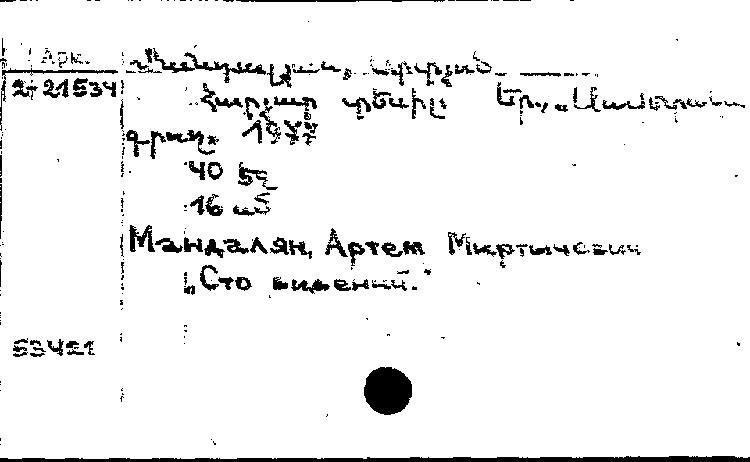 Арк.
Մանդալյան, Արտյոմ
2-21534
Հարյուր տեսիլ Եր., „Սովետական
գրող„ 1977
40 էջ
16 սմ
Мандалян, Артем Мкртычевич
„Сто видений.“
53421